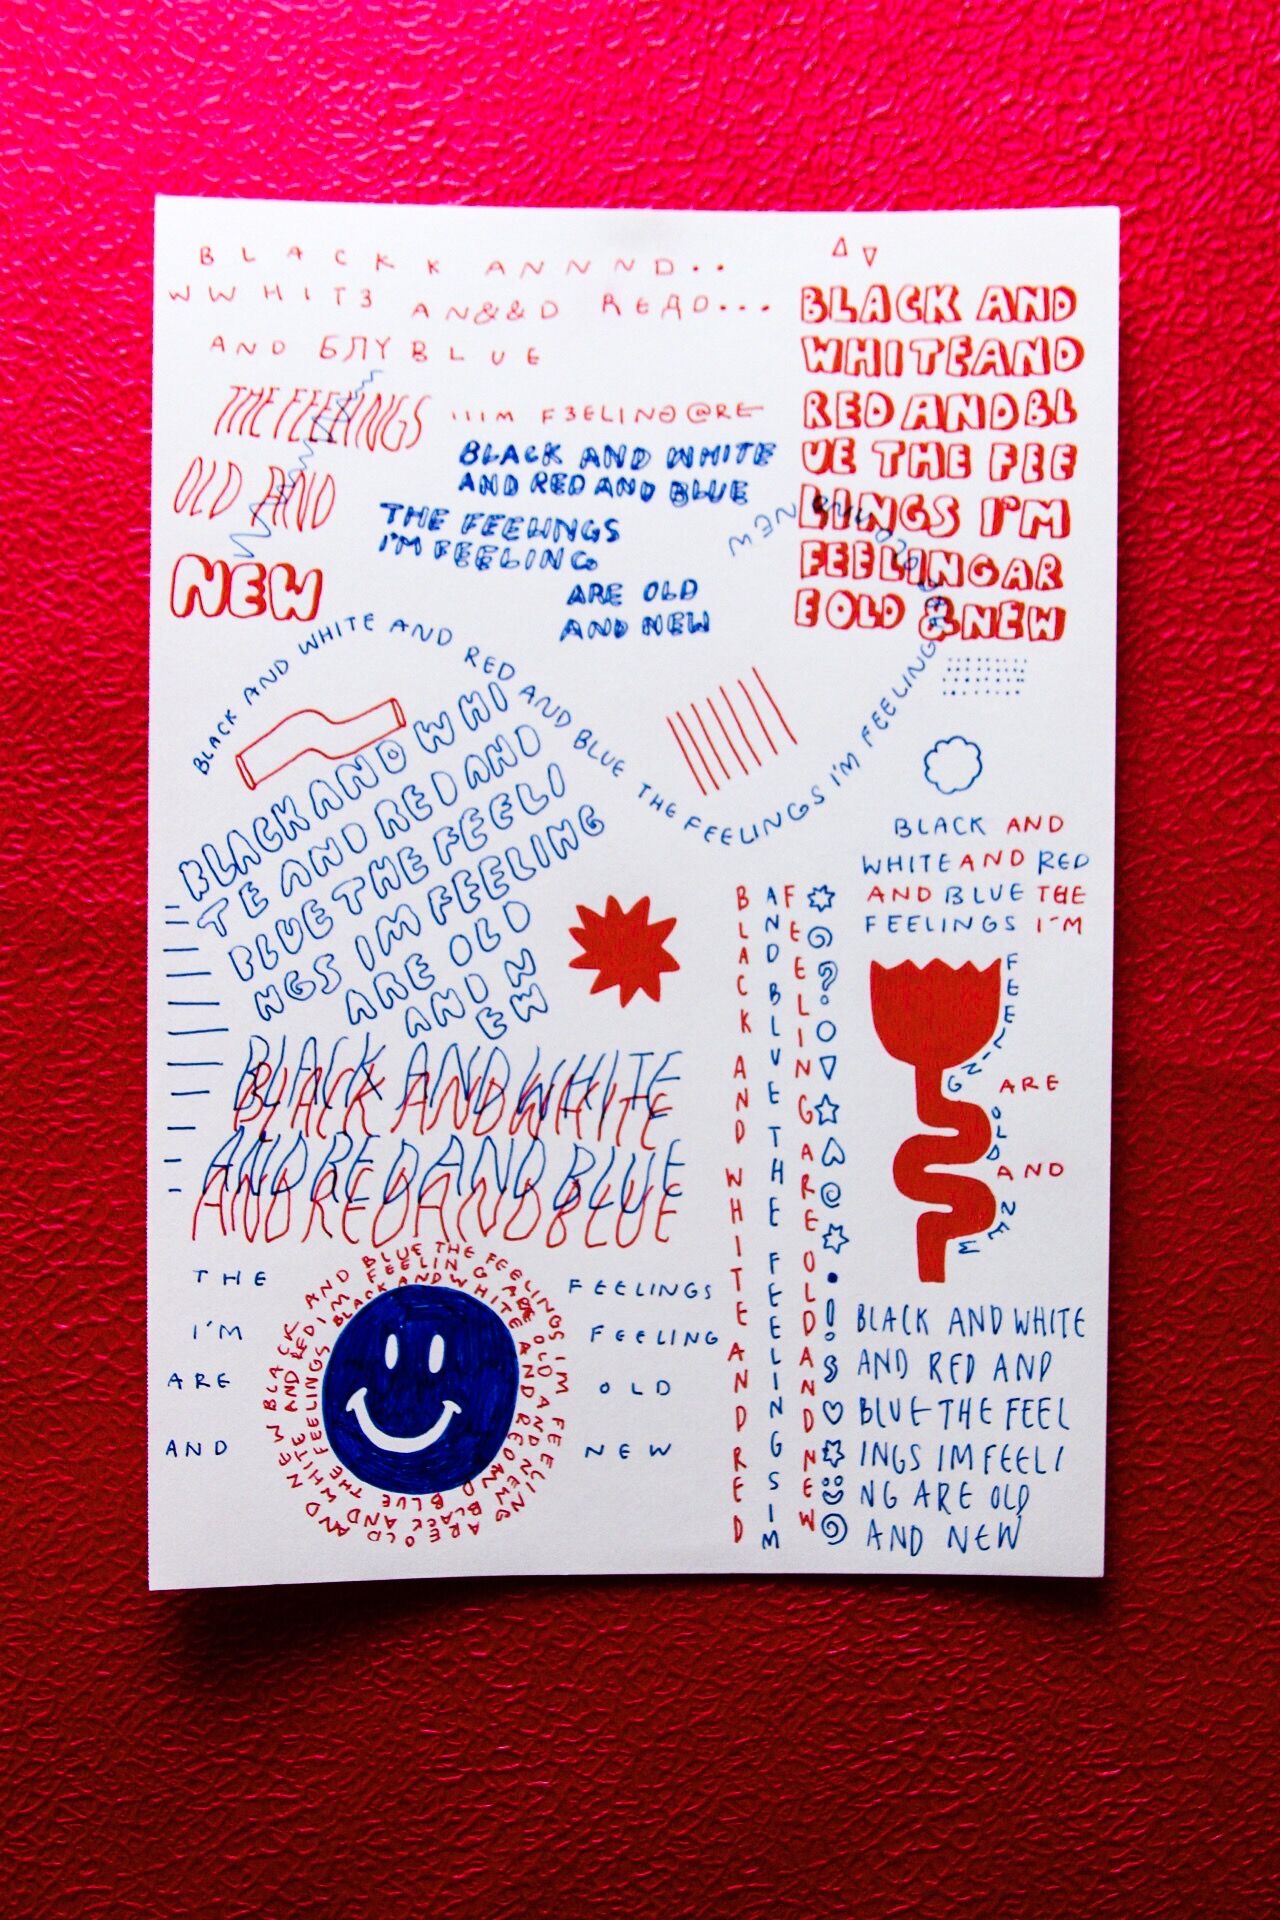 BLACKK ANNND..
WWHIT3 AN&&D READ...
AND БЛУ BLUE
THE FEELINGS ...IM F3ELING @RE
OLD AND
NEW
BLACK AND WHITE
AND RED AND BLUE
THE FEELINGS
I'M FEELING
ARE OLD
AND NEW
BLACK AND
WHITEAND
RED AND BL
UE THE FEE
LINGS I'M
FEELINGAR
E OLD &NEW
BLACK AND WHITE AND RED AND BLUE THE FEELINGS I'M FEELING ARE OLD AND NEW
BLACK AND WHI
TE AND RED AND
BLUE THE FEELI
NGS IM FEELING
ARE OLD
AND N
EW
BLACK AND WHITE
BLACK AND WHITE
AND RED AND BLUE
AND RED AND BLUE
THE FEELINGS
I'M FEELING
ARE OLD
AND NEW
BLACK AND WHITE AND RED AND BLUE THE FEELINGS I'M FEELING ARE OLD AND NEW BLACK AND WHITE AND RED AND BLUE THE FEELINGS IM FEELING ARE OLD AND NEW
BLACK AND WHITE AND RED
AND BLUE THE FEELINGS IM
FEELING ARE OLD AND NEW
BLACK AND
WHITE AND RED
AND BLUE THE
FEELINGS I'M
FEELING
ARE
OLD
AND
NEW
BLACK AND WHITE
AND RED AND
BLUE THE FEEL
INGS IM FEELI
NG ARE OLD
AND NEW